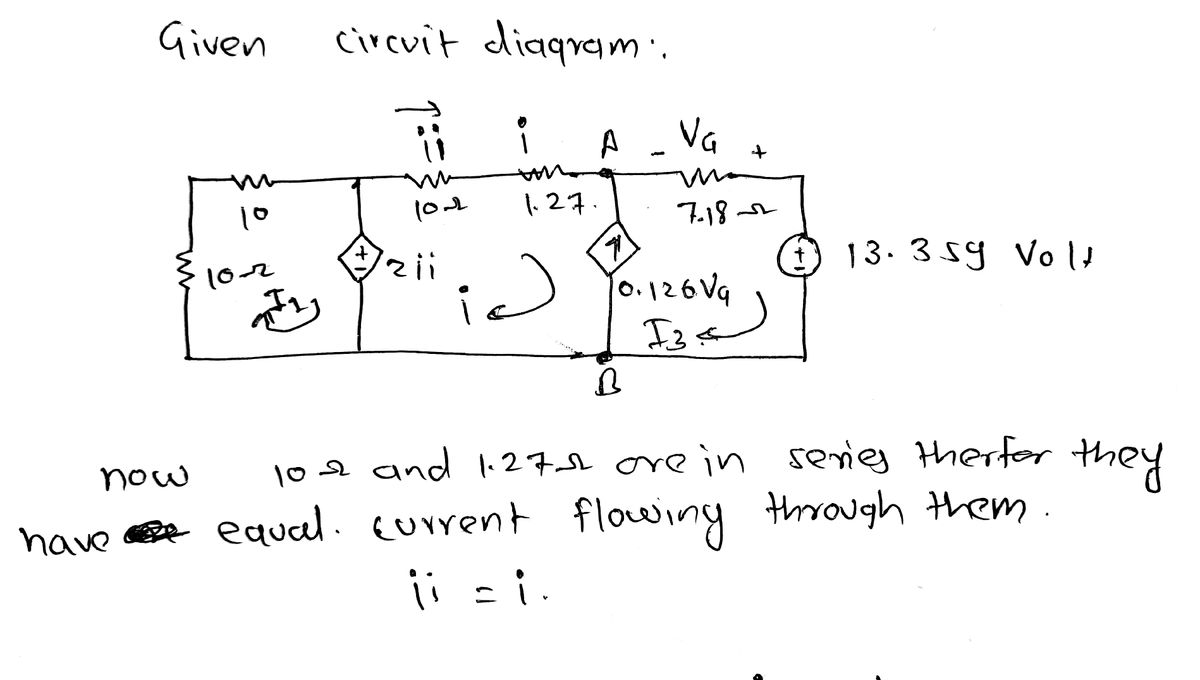 Given circuit diagram:.
ii i A - VG +
10 10Ω 1.27. 7.18Ω
10Ω + - 2ii + - 13.359 Volt
I1 i 0.126VG
I3
B
now 10Ω and 1.27Ω are in series therfor they
have equal. current flowing through them.
ii = i.